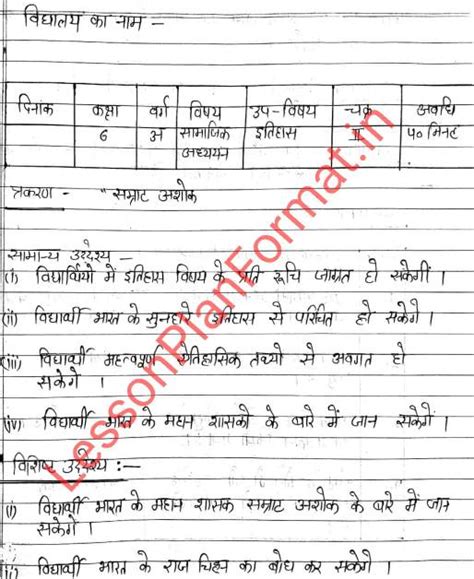 विद्यालय का नाम –
दिनांक कक्षा वर्ग विषय उप-विषय चक्र अवधि
6 अ सामाजिक इतिहास II ५० मिनट
अध्ययन
प्रकरण - " सम्राट अशोक
सामान्य उद्देश्य –
(i) विद्यार्थियों में इतिहास विषय के प्रति रूचि जाग्रत हो सकेगी ।
(ii) विद्यार्थी भारत के सुनहरे इतिहास से परिचित हो सकेगे ।
(iii) विद्यार्थी महत्वपूर्ण ऐतिहासिक तथ्यो से अवगत हो
सकेगे ।
(iv) विद्यार्थी भारत के महान शासको के बारे में जान सकेगें ।
विशिष्ट उद्देश्य :—
(i) विद्यार्थी भारत के महान शासक सम्राट अशोक के बारे में जान
सकेगें ।
(ii) विद्यार्थी भारत के राज चिह्न का बोध कर सकेगें ।
LessonPlanFormat.in